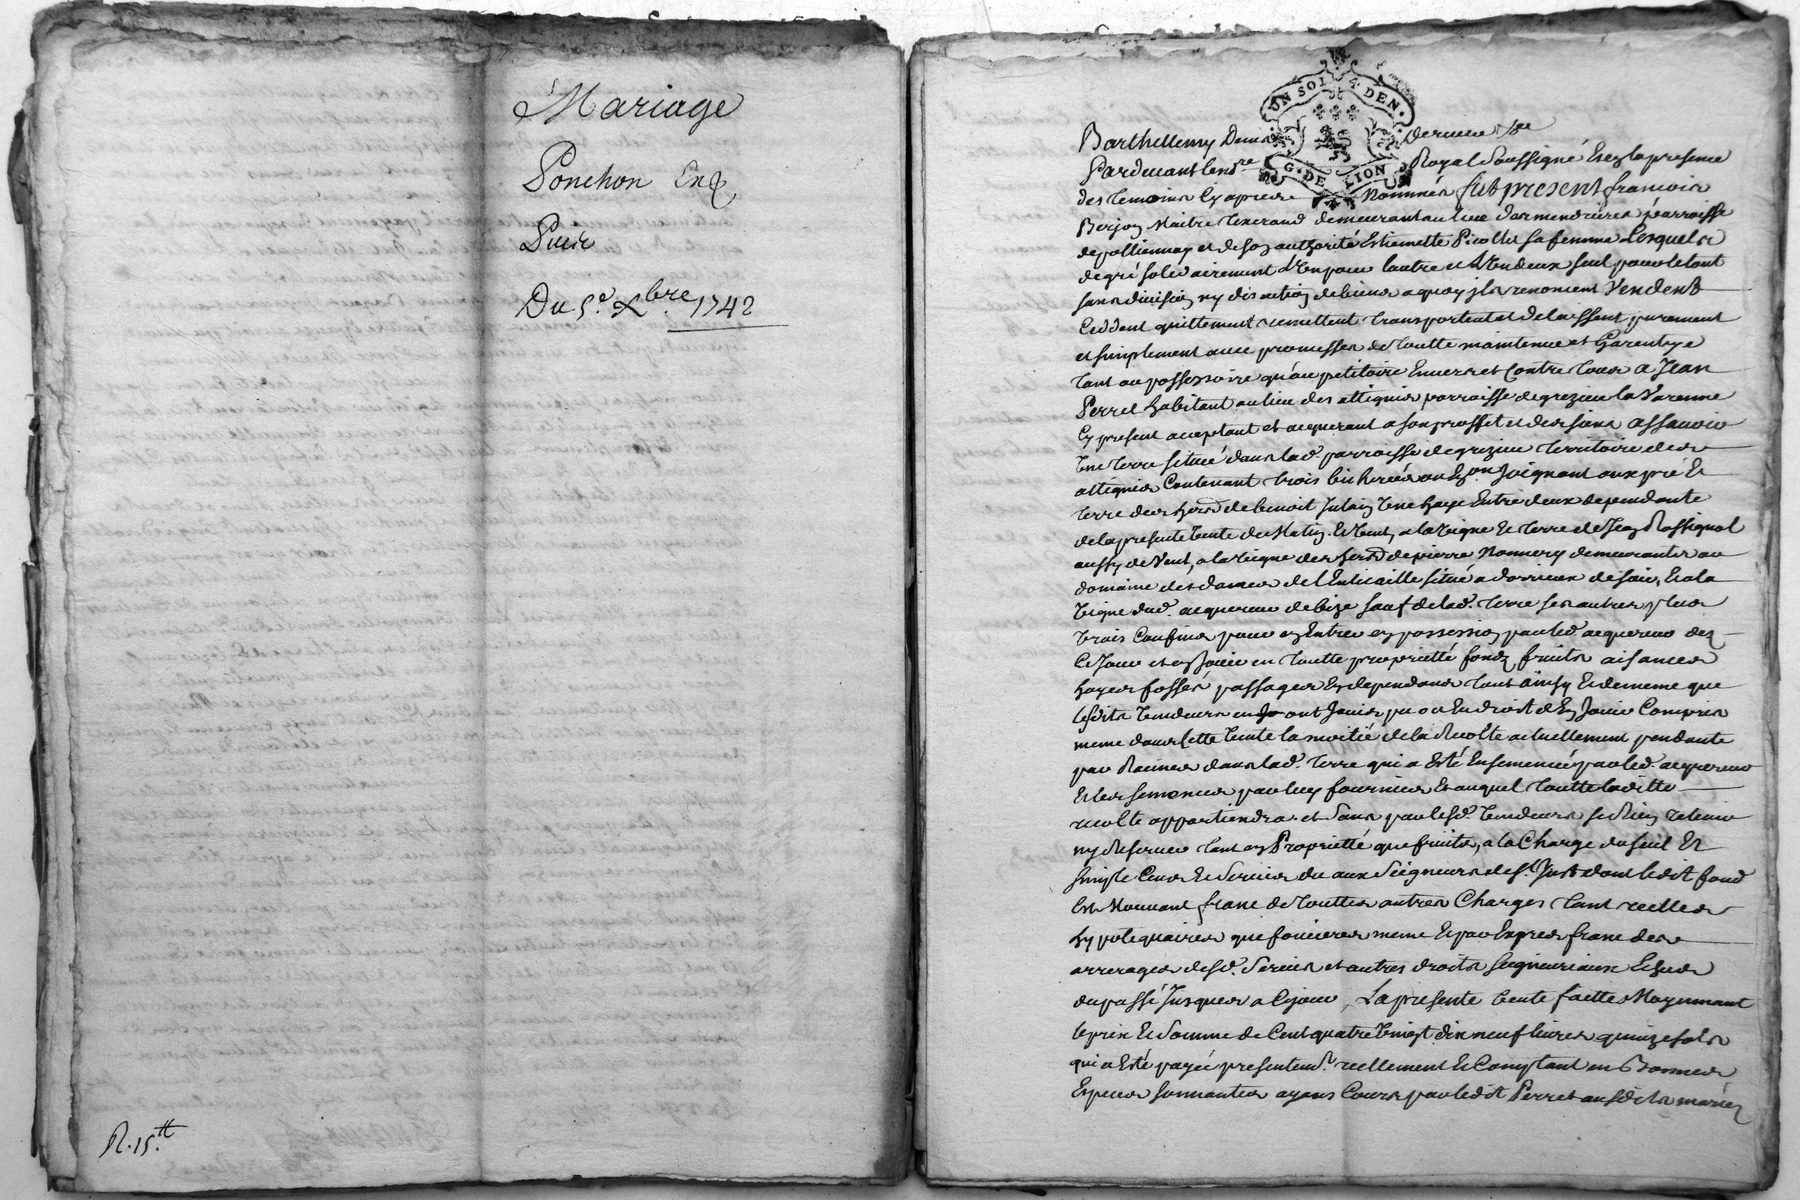 Mariage
Ponchon Et
Puir
Du 5.e Xbre. 1742
R. 15.tt
UN SOL 4 DEN.
G. DE LION
Barthellemy
Pardevant le no.re Royal Soussigné Et en la presence
des temoins cy apres Nommés fut present francois
Berjon Maitre texerand demeurant au lieu parroisse
de pollionnay et de son authorité Estiennette Picollet sa femme Lesquels
de gré solidairement L'un pour l'autre et L'un d'eux seul pour le tout
sans division ny discution de biens a quoy ils renoncent Vendent
Ceddent quittement remettent transportent et delaissent purement
et simplement avec promesses de toutte maintenue et Garentye
tant au possessoire qu'au petitoire Envers et Contre tous a Jean
Perret habitant au lieu des attignies parroisse de grezieu la Varenne
Cy present acceptant et acquerant a son proffit et des siens assavoir
Une terre situeé dans lad. parroisse de grezieu territoire des
attignies Contenant trois bicherées ou En.on Joignant aux pré Et
terre des hers. de benoit Une haye Entre deux dependante
de la presente Vente de Matin. Et Vent, a la Vigne Et terre de Jean Rossignol
aussy de Vent, a la Vigne des hers. de pierre Nonnery demeurants au
domaine des dames de situé a de soir, Et a la
Vigne dud. acquereur de bize sauf de lad. terre ses autres plus
Vrais Confins pour en Entrer en possession par led. acquereur dez
Ce Jour et en Jouir en toutte proprietté fondz fruits aisances
hayes fossés passages En dependans tout ainsy Et de meme que
lesdits Vendeurs en ont Jouis pu ou Eu droit d'En Jouir Compris
meme dans cette Vente la moitié de la Recolte actuellement pendante
par Racines dans lad. terre qui a Esté Ensemencée par led. acquereur
Et les semences par luy fournies Et auquel toutte laditte
recolte appartiendra. et sans par lesd. Vendeurs se Rien retenir
ny Reserver tant en Proprietté que fruits, a la Charge du seul Et
simple Cens Et Servis du aux Seigneurs de St. Just dont ledit fond
Est Mouvant franc de touttes autres Charges tant reelles
hypotequaires que foncieres meme Et par Expres franc des
arrerages desd. Servis et autres droits seigneuriaux Echus
du passé Jusques a Cejour, La presente Vente faitte Moyennant
le prix Et Somme de Cent quatre Vingt dix neuf livres quinze sols
qui a Esté payée presentemt. reellement Et Comptant en Bonnes
Especes sonnantes ayans Cours par ledit Perret ausdits mariéz